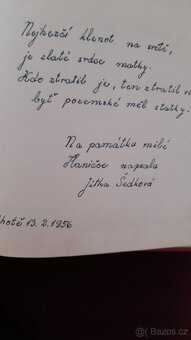 Nejhezčí klenot na světě,
je zlaté srdce matky.
Kdo ztratil je, ten ztratil v
byť pozemské měl statky.
Na památku milé
Haničce napsala
Jitka Šedková
hotě 13.2.1956
© Bazos.cz